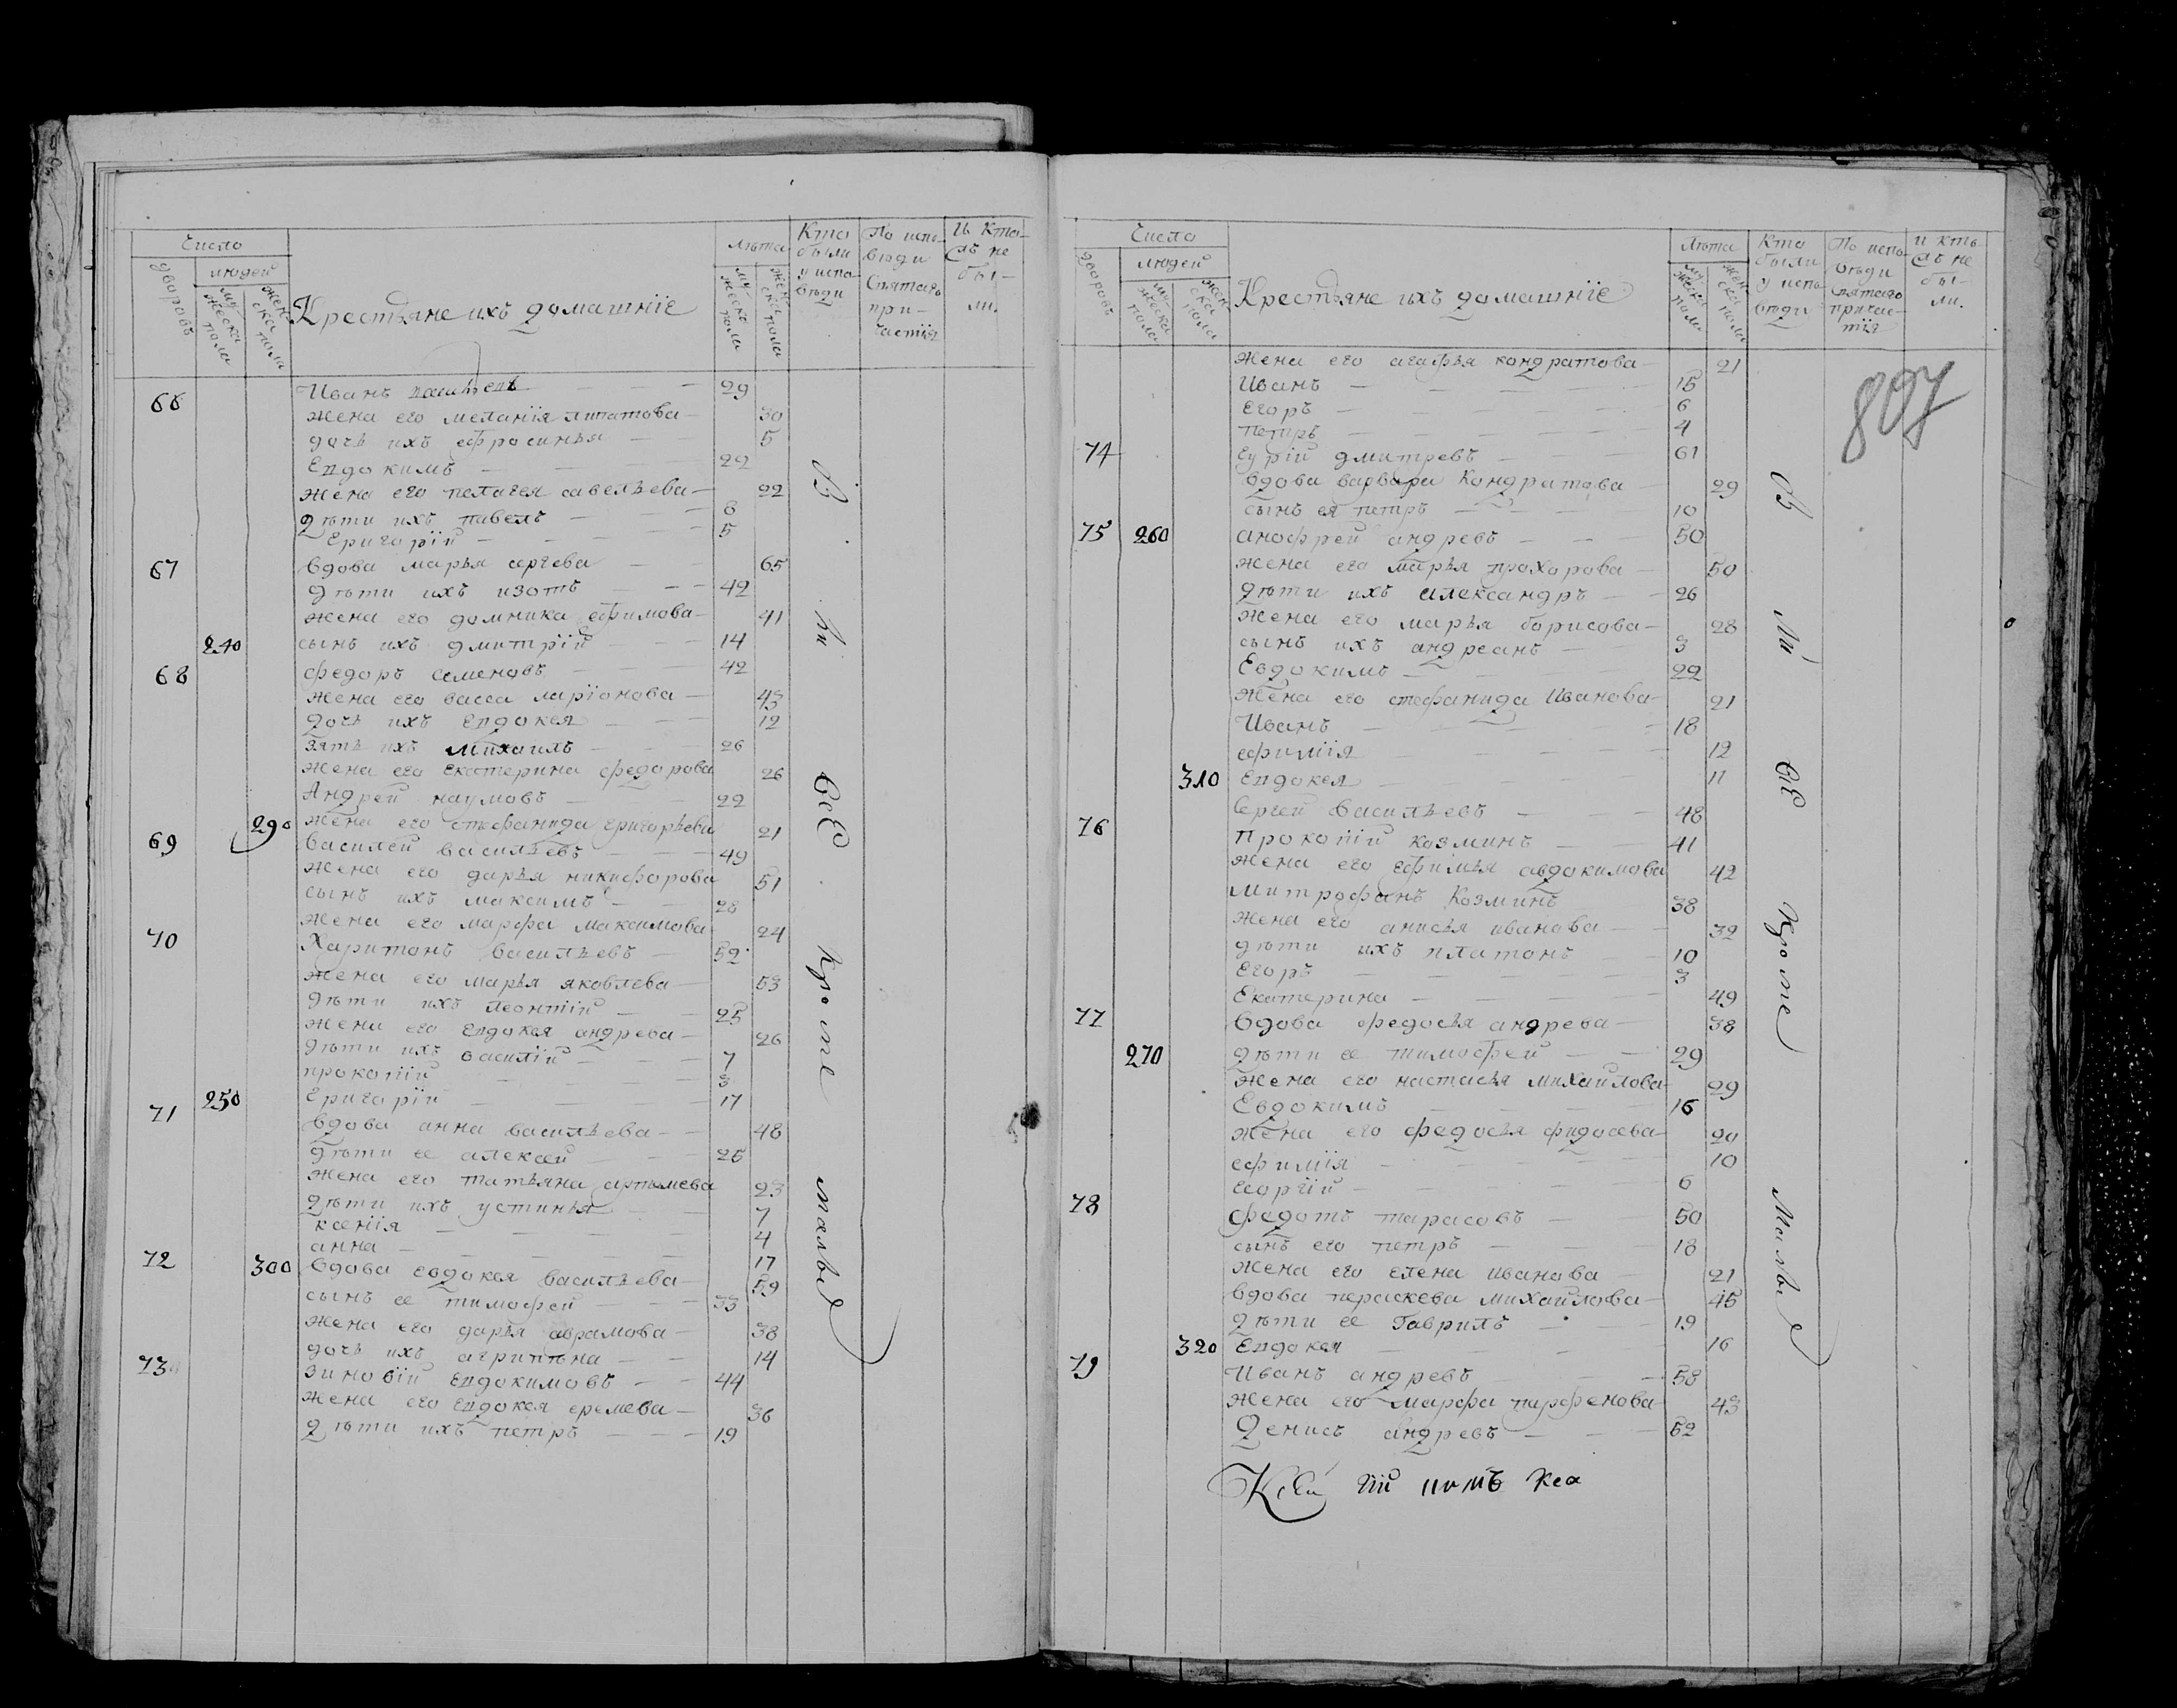 Число
людей
дворовъ
мужеска пола
женска пола
Крестьяне ихъ домашнїе
Лѣта
мужеска пола
женска пола
Кто были у исповѣди
По исповѣди Святаго причастїя
И Кто же не были.
66 Иванъ 29
жена его меланїя липатова 30
дочь ихъ ефросинья 5
Евдокимъ 22
жена его пелагея савельева 22
дѣти ихъ павелъ 6
Григорїй 5
67 вдова марья сергева 65
дѣти ихъ изотъ 42
жена его домника ефимова 41
240 сынъ ихъ дмитрїй 14
68 федоръ семеновъ 42
жена его васса ларїонова 43
дочь ихъ Евдокея 12
зять ихъ михаилъ 26
жена его екатерина федорова 26
Андрей наумовъ 22
290 жена его стефанида григорьева 21
69 василей васильевъ 49
жена его дарья никифорова 51
сынъ ихъ максимъ 28
жена его марфа максимова 24
70 Харитонъ васильевъ 52
жена его марья яковлева 53
дѣти ихъ леонтїй 25
жена его евдокея андрева 26
дѣти ихъ василїй 7
прокопїй 3
250 Григорїй 17
71 вдова анна васильева 48
дѣти ее алексей 26
жена его татьяна артемева 23
дѣти ихъ устинья 7
ксенїя 4
анна 17
72 300 вдова евдокея васильева 59
сынъ ее тимофей 33
жена его дарья аврамова 38
дочь ихъ агрипѣна 14
73 зиновїй Евдокимовъ 44
жена его евдокея еремева 36
дѣти ихъ петръ 19
всѣ Кроме малыхъ
Число
людей
дворовъ
мужеска пола
женска пола
Крестьяне ихъ домашнїе
Лѣта
мужеска пола
женска пола
Кто были у исповѣди
По исповѣди святаго причастїя
и кто же не были.
807
жена его агафья кондратова 21
Иванъ 15
Егоръ 6
петръ 4
74 дмитревъ 61
вдова варвара Кондратова 29
сынъ ея петръ 10
75 260 анофрей андревъ 50
жена его марья прохорова 50
дѣти ихъ александръ 26
жена его марья борисова 28
сынъ ихъ андреанъ 3
Евдокимъ 22
жена его стефанида Иванова 21
Иванъ 18
ефимїя 12
310 Евдокея 11
Сергей васильевъ 48
76 прокопїй козминъ 41
жена его ефимья авдокимова 42
митрофанъ Козминъ 38
жена его анисья иванова 32
дѣти ихъ платонъ 10
Егоръ 3
Екатерина 49
77 вдова федосья андрева 38
270 дѣти ее тимофей 29
жена его настасья михаилова 29
Евдокимъ 16
жена его федосья фидосева 20
ефимїя 10
георгїй 6
78 федотъ тарасовъ 50
сынъ его петръ 18
жена его елена иванова 21
вдова пераскева михаилова 45
дѣти ее Гаврилъ 19
320 Евдокея 16
79 Иванъ андревъ 58
жена его марфа парфенова 43
Денисъ андревъ 62
всѣ Кроме Малыхъ